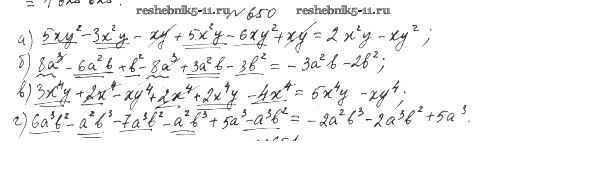 reshebnik5-11.ru № 650 reshebnik5-11.ru
а) 5xy² - 3x²y - xy + 5x²y - 6xy² + xy = 2x²y - xy²;
б) 8a³ - 6a²b + b² - 8a³ + 3a²b - 3b² = -3a²b - 2b²;
в) 3x⁴y + 2x⁴ - xy⁴ + 2x⁴ + 2x⁴y - 4x⁴ = 5x⁴y - xy⁴;
г) 6a³b² - a²b³ - 7a³b² - a²b³ + 5a³ - a³b² = -2a²b³ - 2a³b² + 5a³.